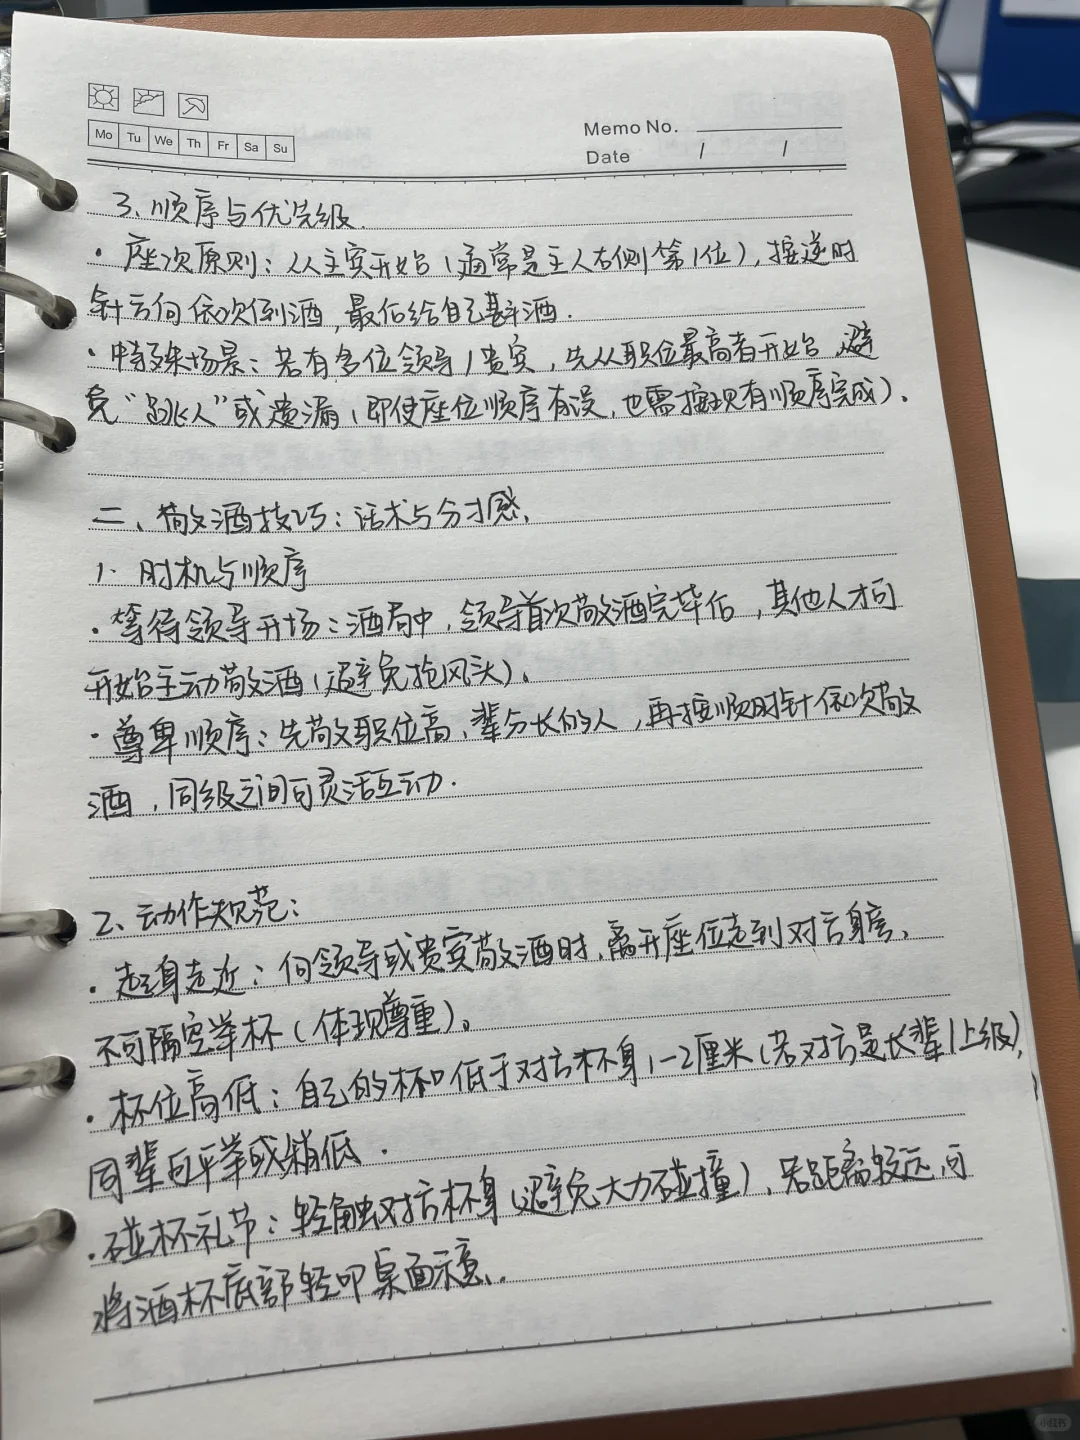 Mo Tu We Th Fr Sa Su
Memo No.
Date / /
3、顺序与优先级.
· 座次原则：从主宾开始（通常是主人右侧第1位），按逆时
针方向依次倒酒，最后给自己斟酒.
· 特殊场景：若有多位领导/贵宾，先从职位最高者开始，避
免“跳人”或遗漏（即使座位顺序有误，也需按现有顺序完成）。
二、敬酒技巧：话术与分寸感、
1. 时机与顺序
· 等待领导开场：酒局中，领导首次敬酒完毕后，其他人才可
开始主动敬酒（避免抢风头）。
· 尊卑顺序：先敬职位高、辈分长的人，再按顺时针依次敬
酒，同级之间可灵活互动.
2、动作规范：
· 起身走近：向领导或贵宾敬酒时，离开座位走到对方身旁、
不可隔空举杯（体现尊重）。
· 杯位高低：自己的杯口低于对方杯身1-2厘米（若对方是长辈/上级），
同辈可平举或稍低.
· 碰杯礼节：轻触对方杯身（避免大力碰撞）、若距离较远，可
将酒杯底部轻叩桌面示意、.
小红书